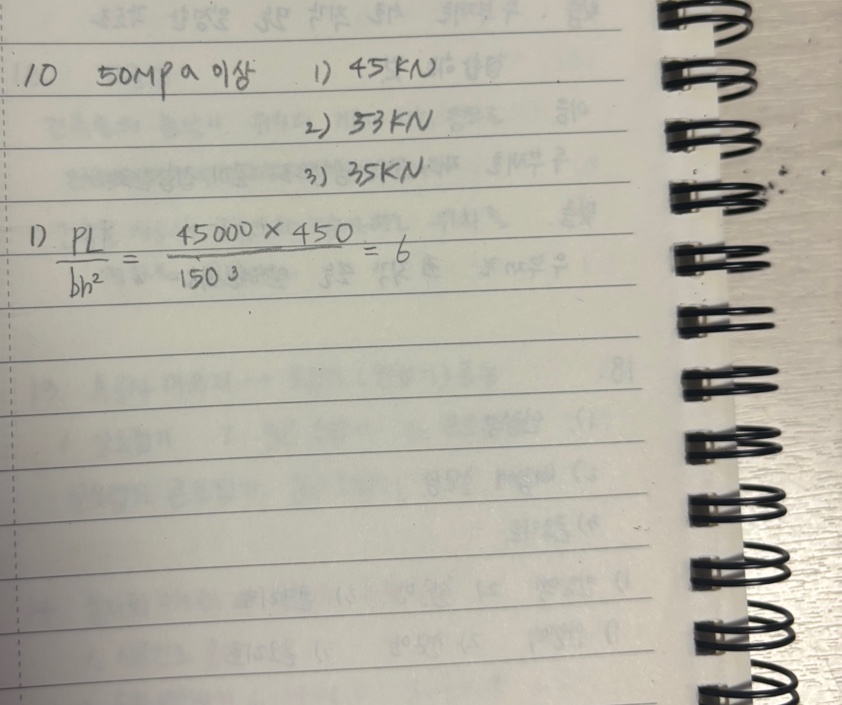 10 50MPa 이상 1) 45KN
2) 53KN
3) 35KN
1) PL/bh² = 45000 × 450/150³ = 6